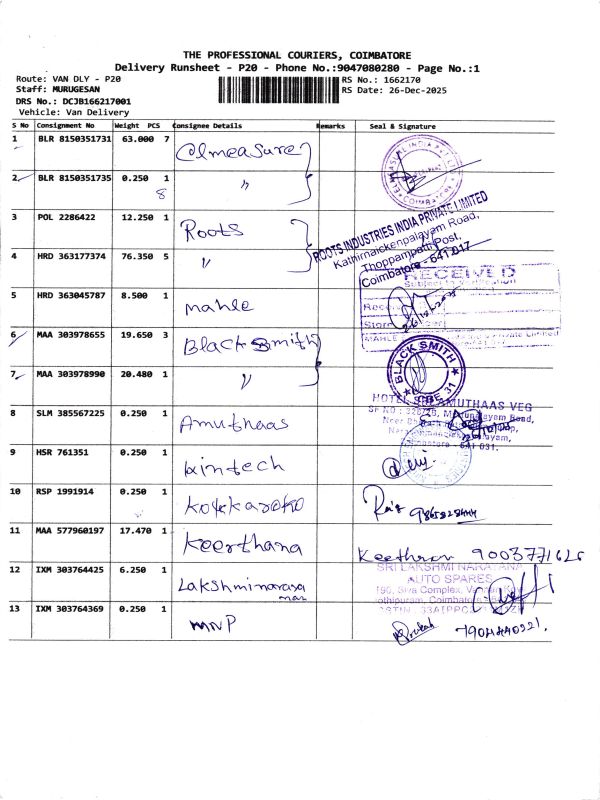 THE PROFESSIONAL COURIERS, COIMBATORE
Delivery Runsheet - P20 - Phone No.:9047080280 - Page No.:1
Route: VAN DLY - P20
RS No.: 1662170
Staff: MURUGESAN
RS Date: 26-Dec-2025
DRS No.: DCJB166217001
Vehicle: Van Delivery
S No Consignment No Weight PCS Consignee Details Remarks Seal & Signature
1 BLR 8150351731 63.000 7 Elmeasure
2 BLR 8150351735 0.250 1 "
8
3 POL 2286422 12.250 1 Roots
ROOTS INDUSTRIES INDIA PRIVATE LIMITED
Kathirnaickenpalayam Road,
Thoppampatti Post,
Coimbatore - 641 017
4 HRD 363177374 76.350 5 "
RECEIVED
Subject to Verification
5 HRD 363045787 8.500 1 Mahle
26/12/2025
MAHLE Private Limited
6 MAA 303978655 19.650 3 Black Smith
BLACK SMITH
7 MAA 303978990 20.480 1 "
8 SLM 385567225 0.250 1 Amuthaas
HOTEL SRI AMUTHAAS VEG
9 HSR 761351 0.250 1 kintech
10 RSP 1991914 0.250 1 kokkarako
11 MAA 577960197 17.470 1 Keerthana
9003771626
12 IXM 303764425 6.250 1 Lakshminaraya
nan
SRI LAKSHMI NARAYANA
AUTO SPARES
13 IXM 303764369 0.250 1 MNP